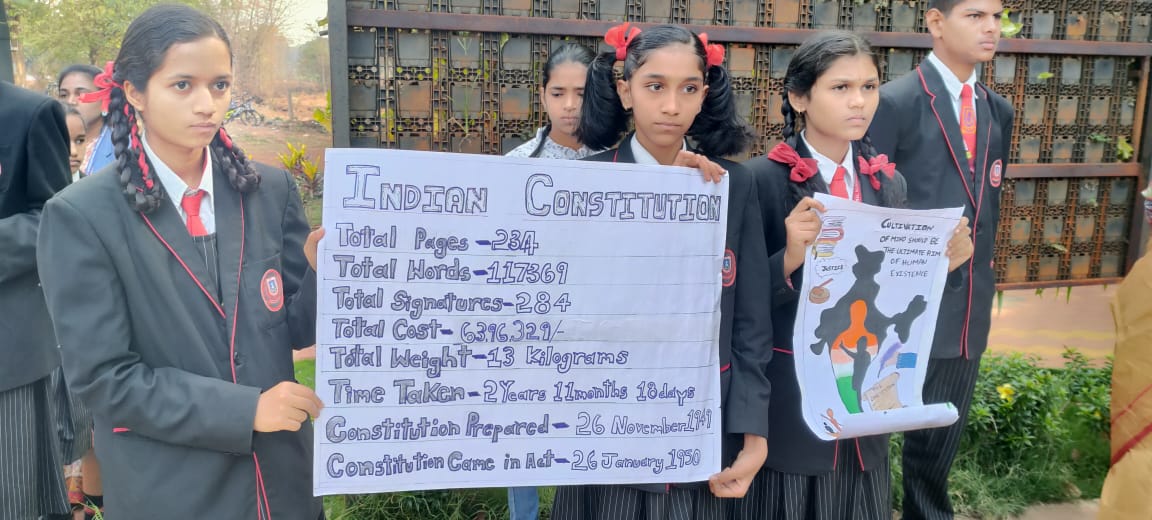 INDIAN CONSTITUTION
Total Pages - 234
Total Words - 117369
Total Signatures - 284
Total Cost - 6396,329/-
Total Weight - 13 Kilograms
Time Taken - 2 Years 11 months 18 days
Constitution Prepared - 26 November 1949
Constitution Came in Act - 26 January 1950
CULTIVATION
OF MIND SHOULD BE
THE ULTIMATE AIM
OF HUMAN
EXISTENCE
JUSTICE